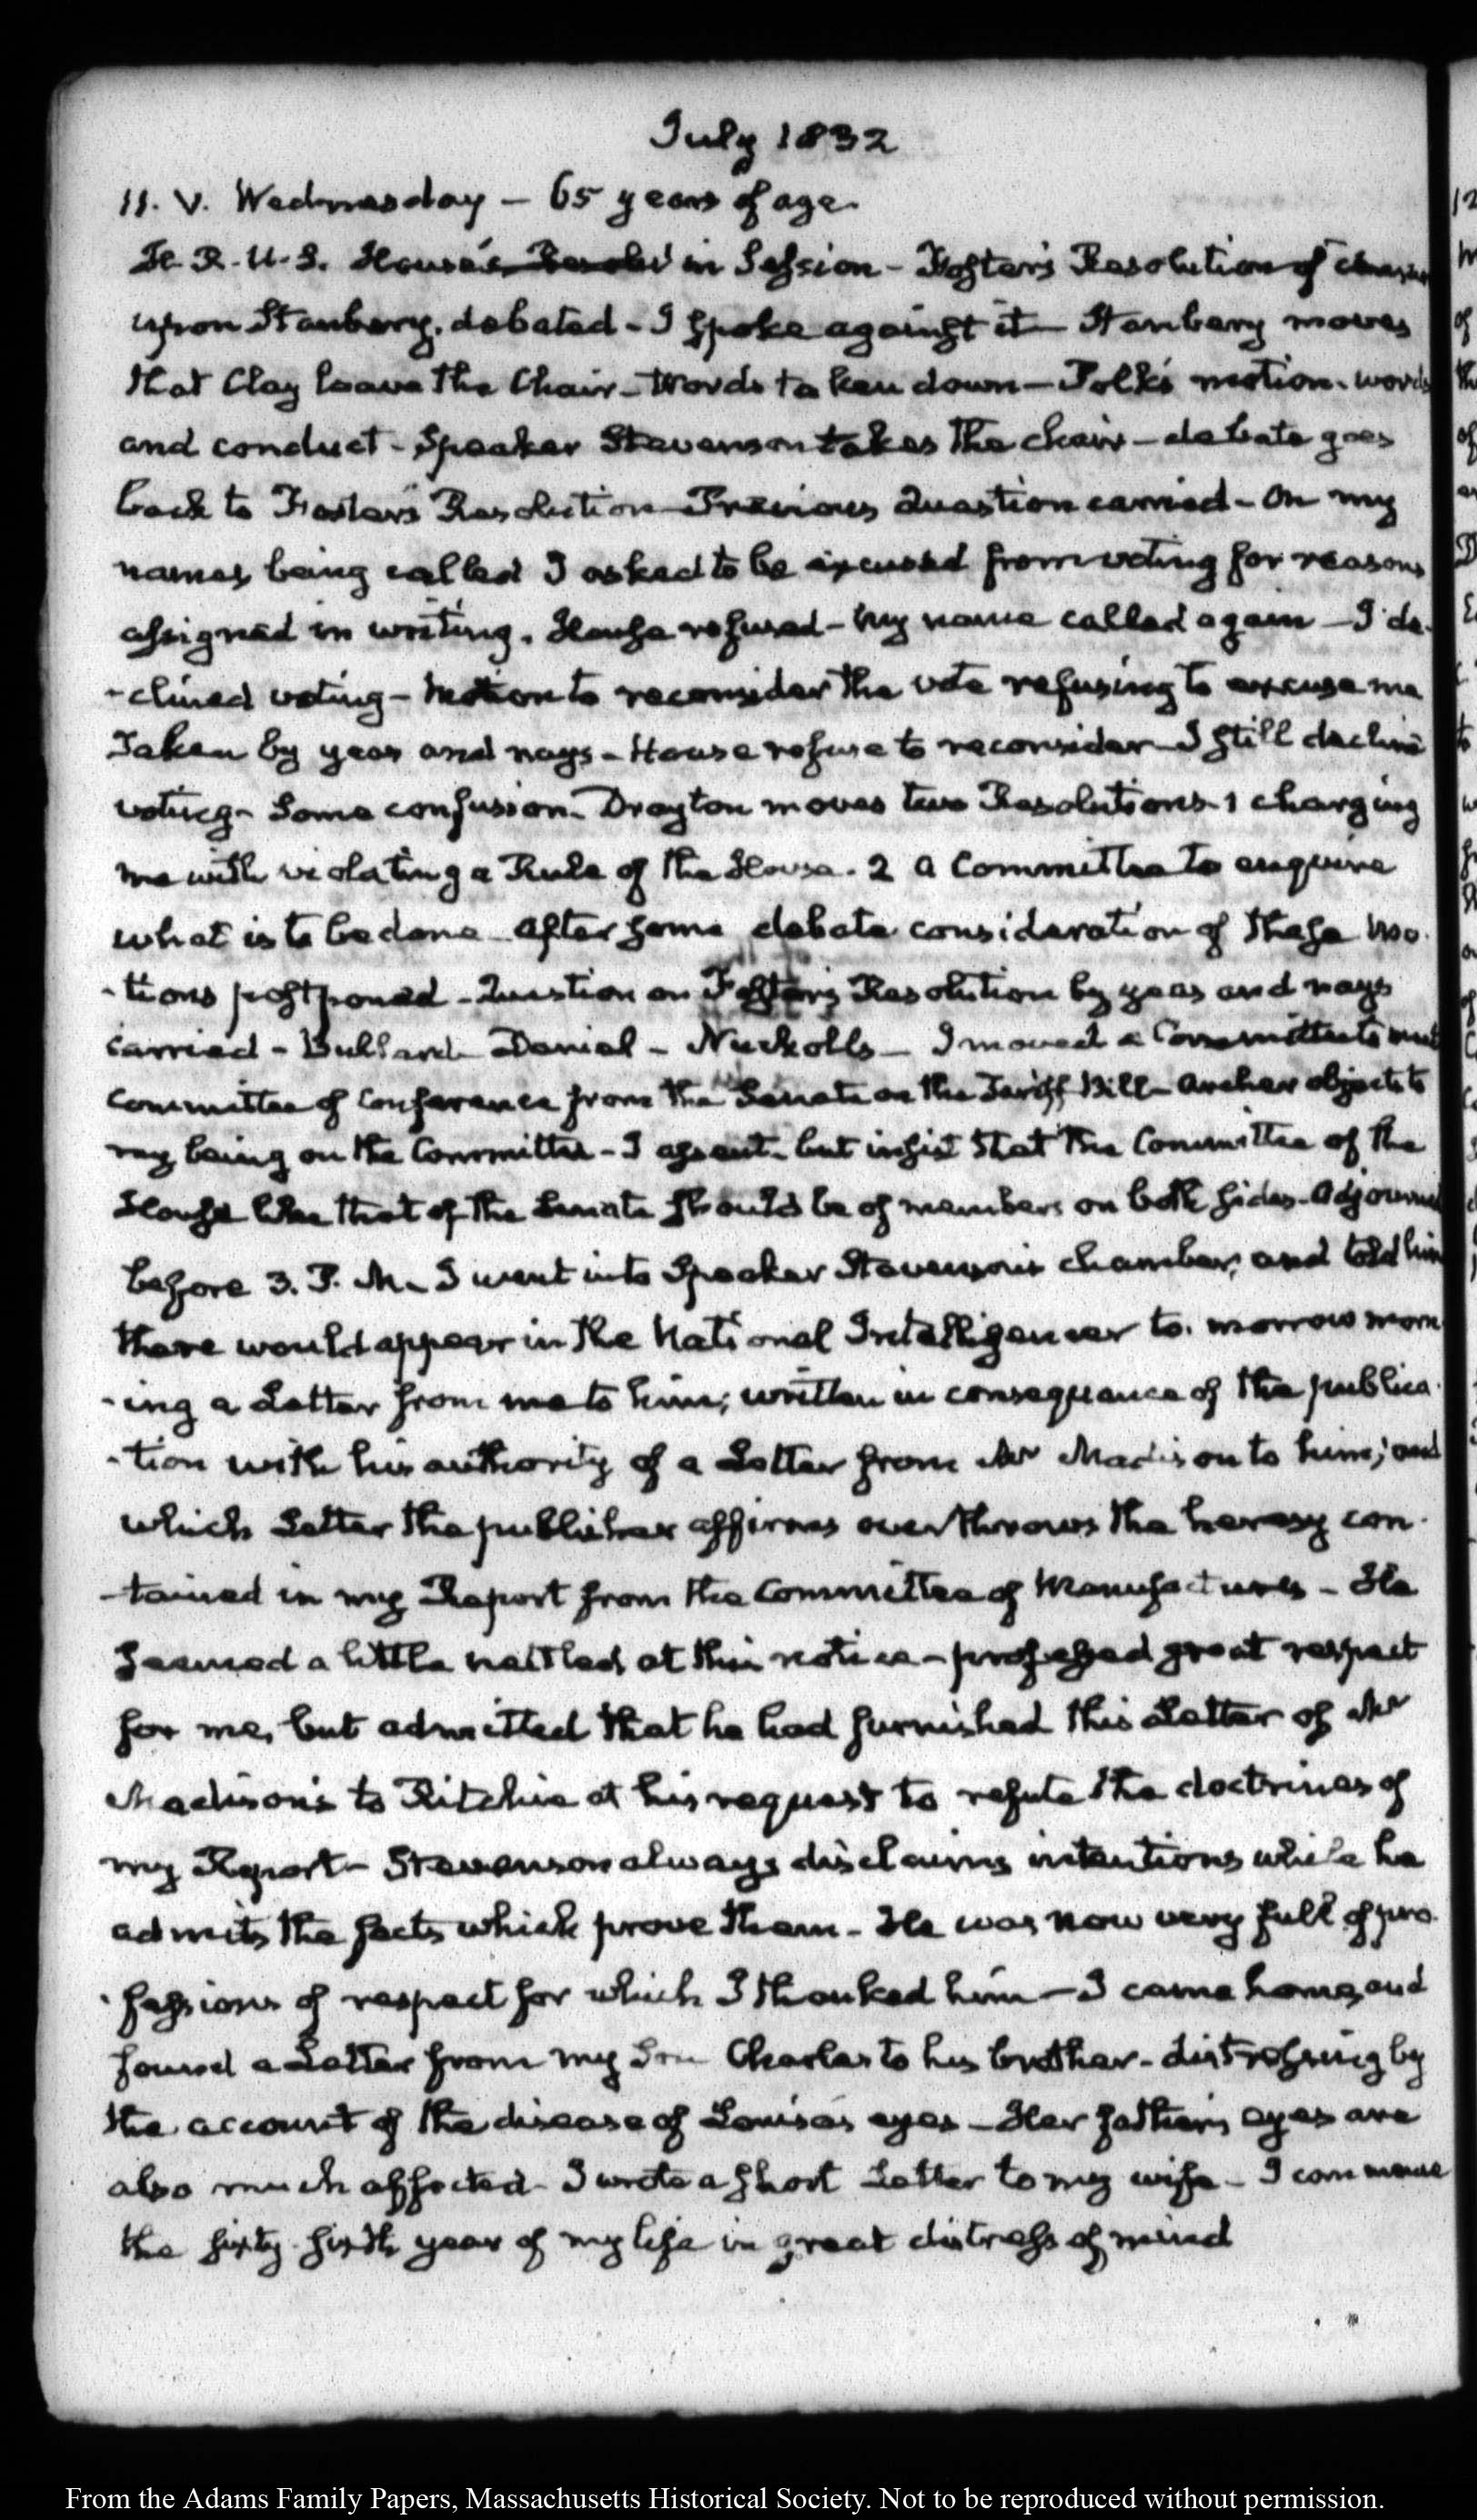 July 1832
11. V. Wednesday – 65 years of age.
H. R. U. S. House in Session – Foster's Resolution of censure
upon Stanbery, debated – I spoke against it – Stanbery moves
that Clay leave the Chair – Words taken down – Polk's motion. words
and conduct – Speaker Stevenson takes the chair – debate goes
back to Foster's Resolution – Previous Question carried – On my
names being called I asked to be excused from voting for reasons
assigned in writing. House refused – my name called again – I de-
-clined voting – Motion to reconsider the vote refusing to excuse me
Taken by yeas and nays – House refuse to reconsider – I still decline
voting – Some confusion. Drayton moves two Resolutions – 1 charging
me with violating a Rule of the House. 2 a Committee to enquire
what is to be done – After some debate consideration of these mo-
-tions postponed – Question on Foster's Resolution by yeas and nays
carried – Bullard – Daniel – Nuckolls – I moved a Committee to meet
Committee of Conference from the Senate on the Tariff Bill – Archer objects to
my being on the Committee – I assent – but insist that the Committee of the
House like that of the Senate should be of members on both sides – Adjourned
before 3. P. M. I went into Speaker Stevenson's chamber, and told him
there would appear in the National Intelligencer to-morrow morn
-ing a Letter from me to him; written in consequence of the publica-
-tion with his authority of a Letter from Mr Madison to him; and
which Letter the publisher affirms overthrows the heresy con-
-tained in my Report from the Committee of Manufactures – He
seemed a little nettled at this notice – professed great respect
for me, but admitted that he had furnished this Letter of Mr
Madison's to Ritchie at his request to refute the doctrines of
my Report – Stevenson always disclaims intentions while he
admits the facts which prove them – He was now very full of pro-
-fessions of respect for which I thanked him – I came home, and
found a Letter from my Son Charles to his brother – distressing by
the account of the disease of Louisa's eyes – Her father's eyes are
also much affected – I wrote a short Letter to my wife – I commence
the sixty-sixth year of my life in great distress of mind
From the Adams Family Papers, Massachusetts Historical Society. Not to be reproduced without permission.